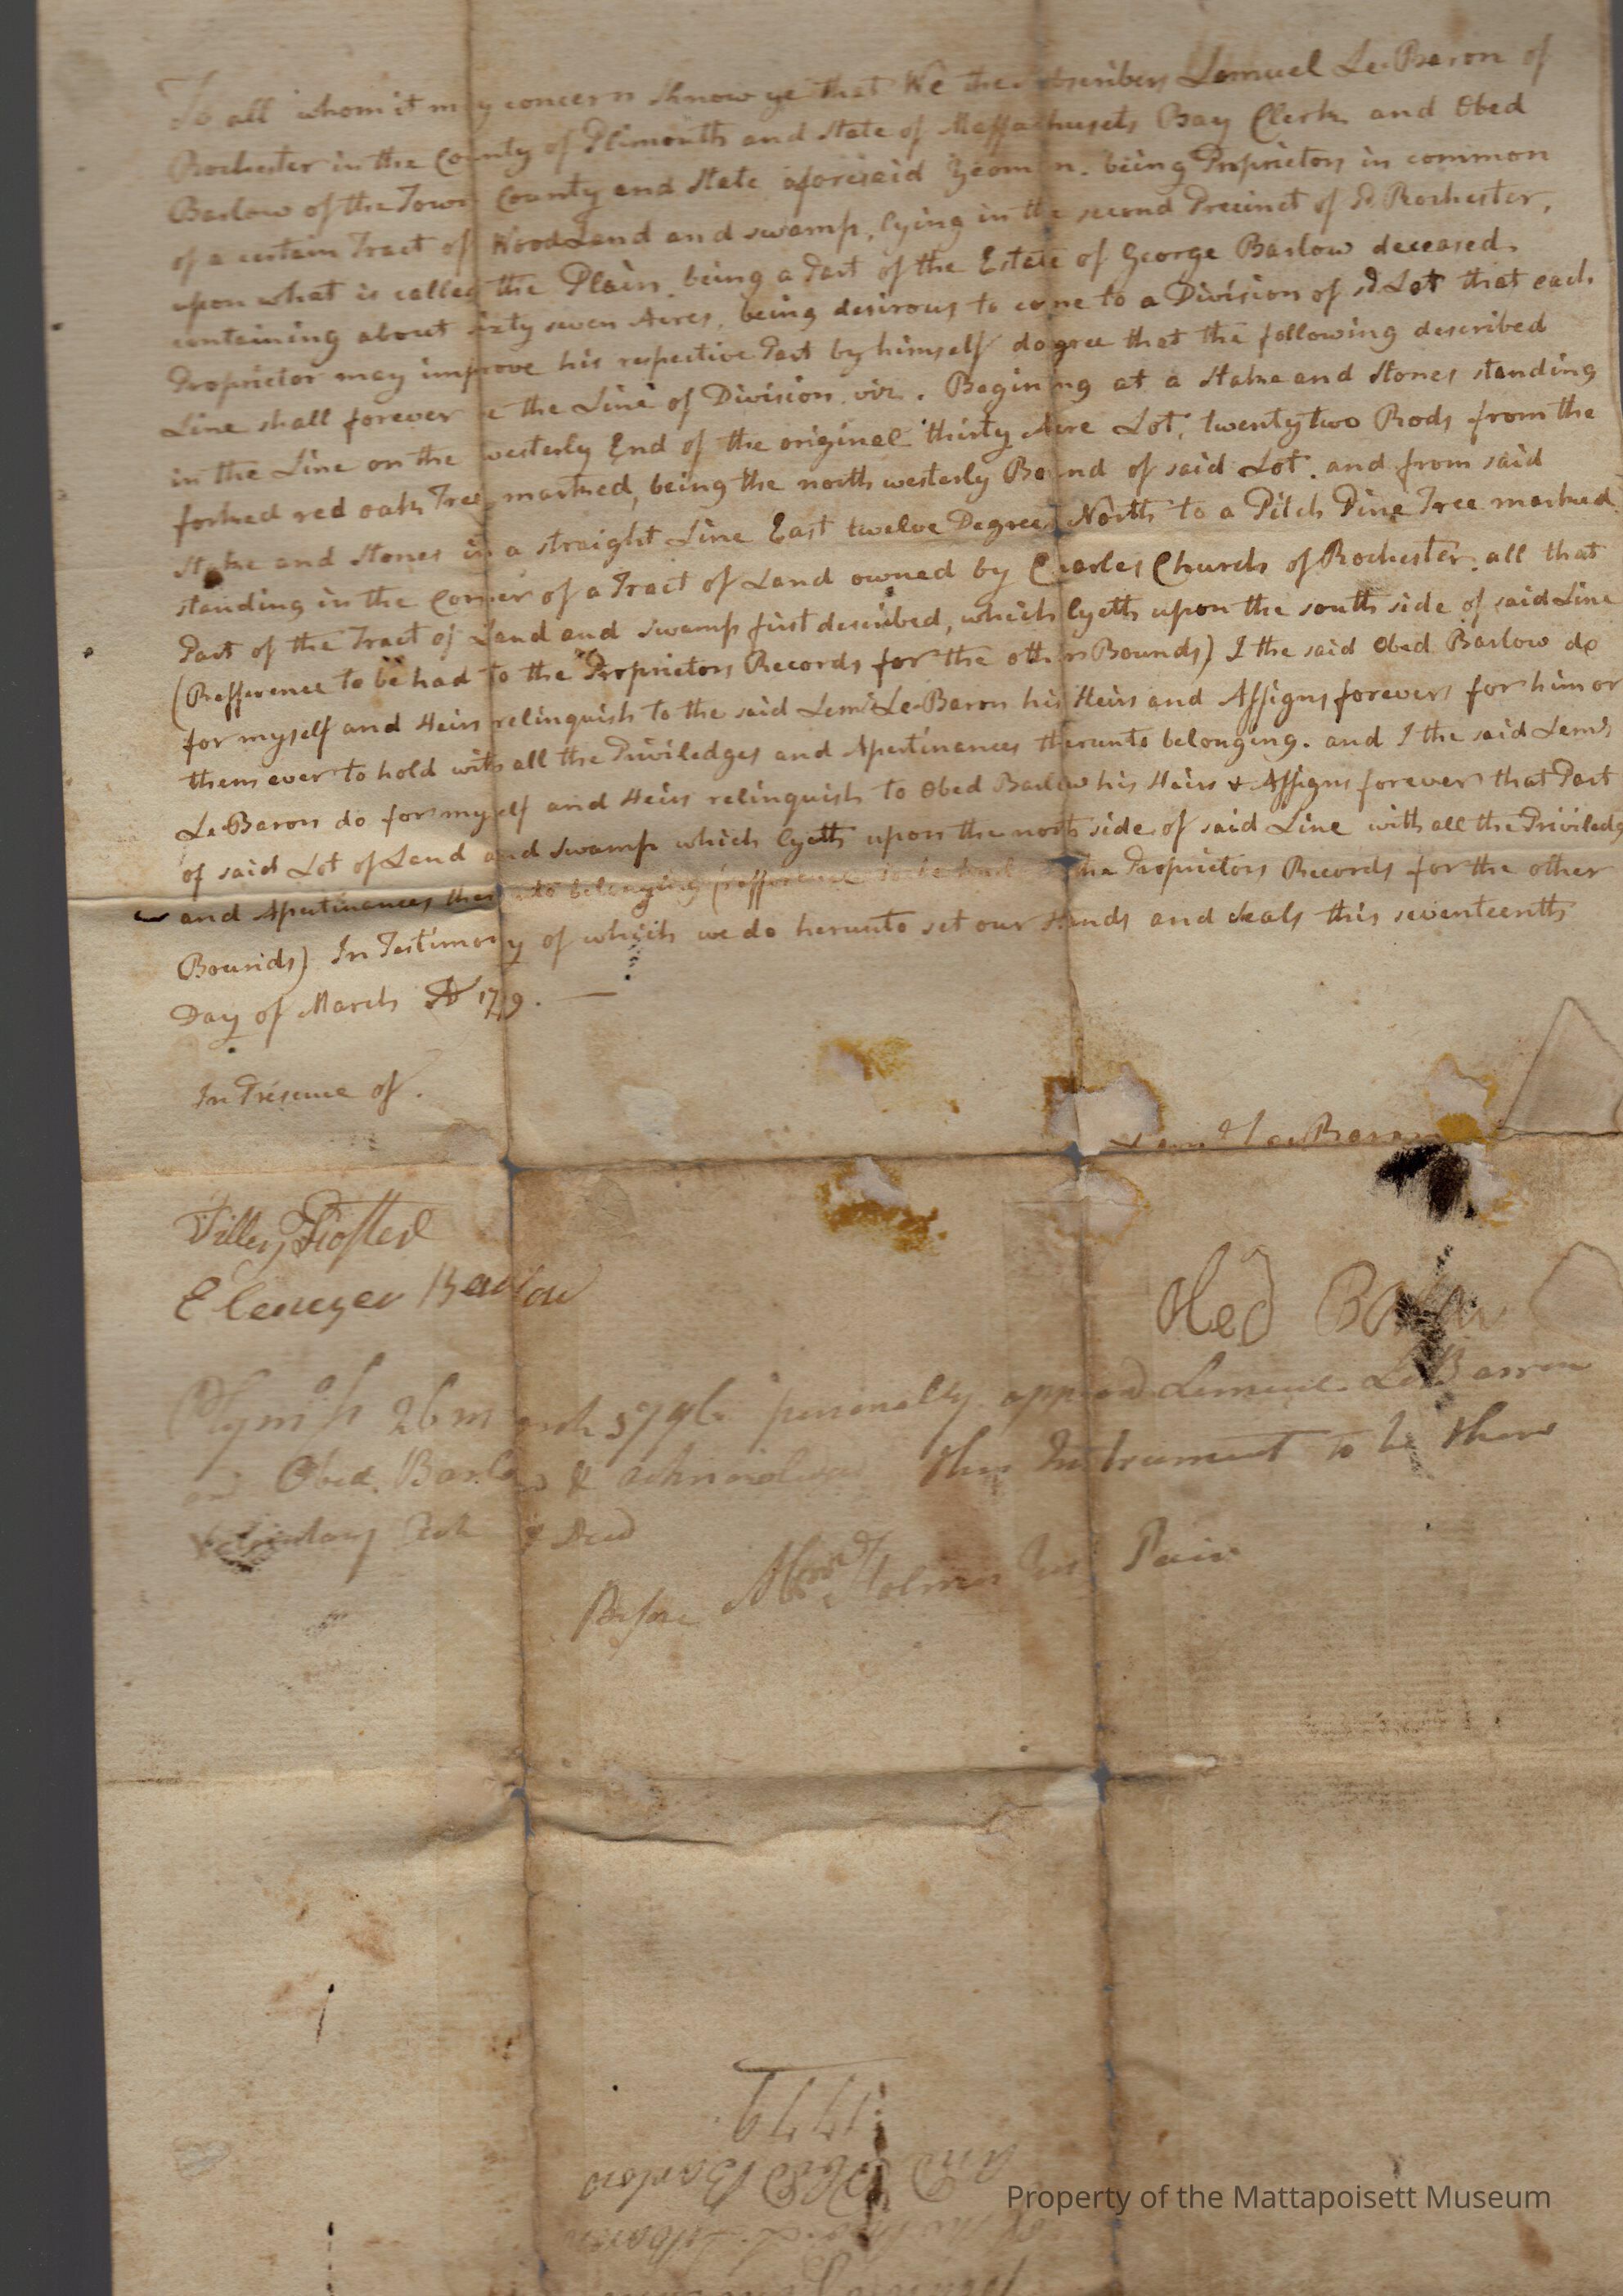 To all whom it may concern Know ye that We the subscribers Lemuel Le-Baron of
Rochester in the County of Plimouth and State of Massachusets Bay Clerk and Obed
Barlow of the Town County and State aforesaid Yeoman. being Proprietors in common
of a certain Tract of Wood Land and swamp, lying in the second Precinct of sd Rochester,
upon what is called the Plain being a Part of the Estate of George Barlow deceased.
containing about sixty seven Acres, being desirous to come to a Division of sd Lot that each
Proprietor may improve his respective Part by himself do agree that the following described
Line shall forever be the Line of Division. viz. Begining at a Stake and Stones standing
in the Line on the westerly End of the original thirty Acre Lot, twenty two Rods from the
forked red oak Tree marked, being the north westerly Bound of said Lot. and from said
Stake and Stones in a straight Line East twelve Degrees North to a Pitch Pine Tree marked
standing in the Corner of a Tract of Land owned by Charles Church of Rochester. all that
Part of the Tract of Land and swamp first described, which lyeth upon the south side of said Line
(Refference to be had to the Proprietors Records for the other Bounds) I the said Obed Barlow do
for myself and Heirs relinquish to the said Leml Le-Baron his Heirs and Assigns forever for him or
them ever to hold with all the Priviledges and Apertinances therunto belonging. and I the said Leml
Le-Baron do for myself and Heirs relinquish to Obed Barlow his Heirs & Assigns forever that Part
of said Lot of Land and swamp which lyeth upon the north side of said Line with all the Priviledg
and Apertinances therunto belonging (refference to be had to the Proprietors Records for the other
Bounds) In Testimony of which we do herunto set our Hands and Seals this seventeenth
Day of March AD 1779. —
In Presence of.
Leml Le Baron
Ebenezer Barlow
Obed Barlow
Plymoh 26 march personally appeard Lemuel LeBarron
and Obed Barlow & acknowledged this Instrument to be there
Voluntary Act & Deed
Before Abrm Holmes Jus Pacis
and Obed Barlow
1779
Property of the Mattapoisett Museum